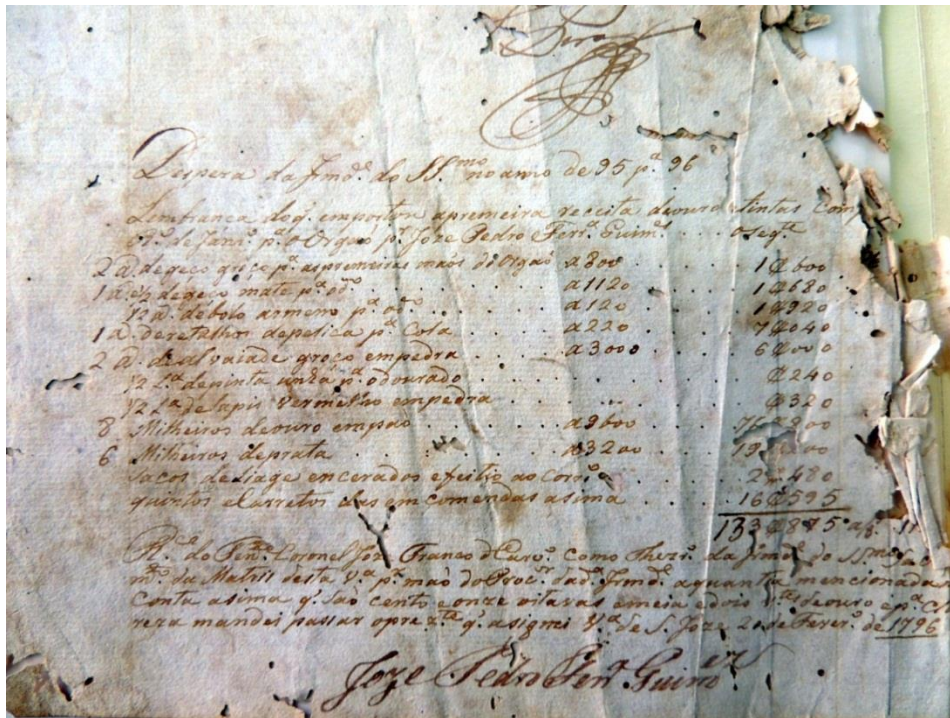 Despeza da Irmd.e do SS.mo no anno de 95 p.a 96
Lembrança do q. emportou apremeira receita deouro etintas com
de Janr.o p.a o Orgaõ p.r Joze Pedro Ferr.a Guim.es oseg.te
2 @ degeço groço p.a aspremeiras maõs do Orgaõ a 800 1$600
1 @ e 1/2 degeço mate p.a o d.o a 1120 1$680
1/2 a. debolo armeno p.a o d.o a 120 1$920
1 @ deretalhos depelica p.a Cola a 220 7$040
2 @ de alvaiade groço empedra a 3000 6$000
1/2 L.a depinta unhá p.a odourado $240
1/2 L.a de lapis vermelho empedra $320
8 Milheiros deouro empaõ a 9600
6 Milheiros deprata a 3200
Sacos deliage encerados efeitio ao Corr.o 2 480
quintos eCarretos das emcomendas asima 16$595
133$875
R.ce do Ten.e Coronel Joze Franco d Carv.o como Thezr.o da Irmd.e do S.mo Sac
m.to da Matris desta V.a p.r maõ do Proc.or dad.a Irmd.e aquantia mencionada
Conta asima q. saõ cento eonze oitavas emeia edois v.es deouro ep.a Cl
reza mandei passar oprez.te q. asignei V.a de S. Joze 20 de Fever.o de 1796
Joze Pedro Ferr.a Guim.es